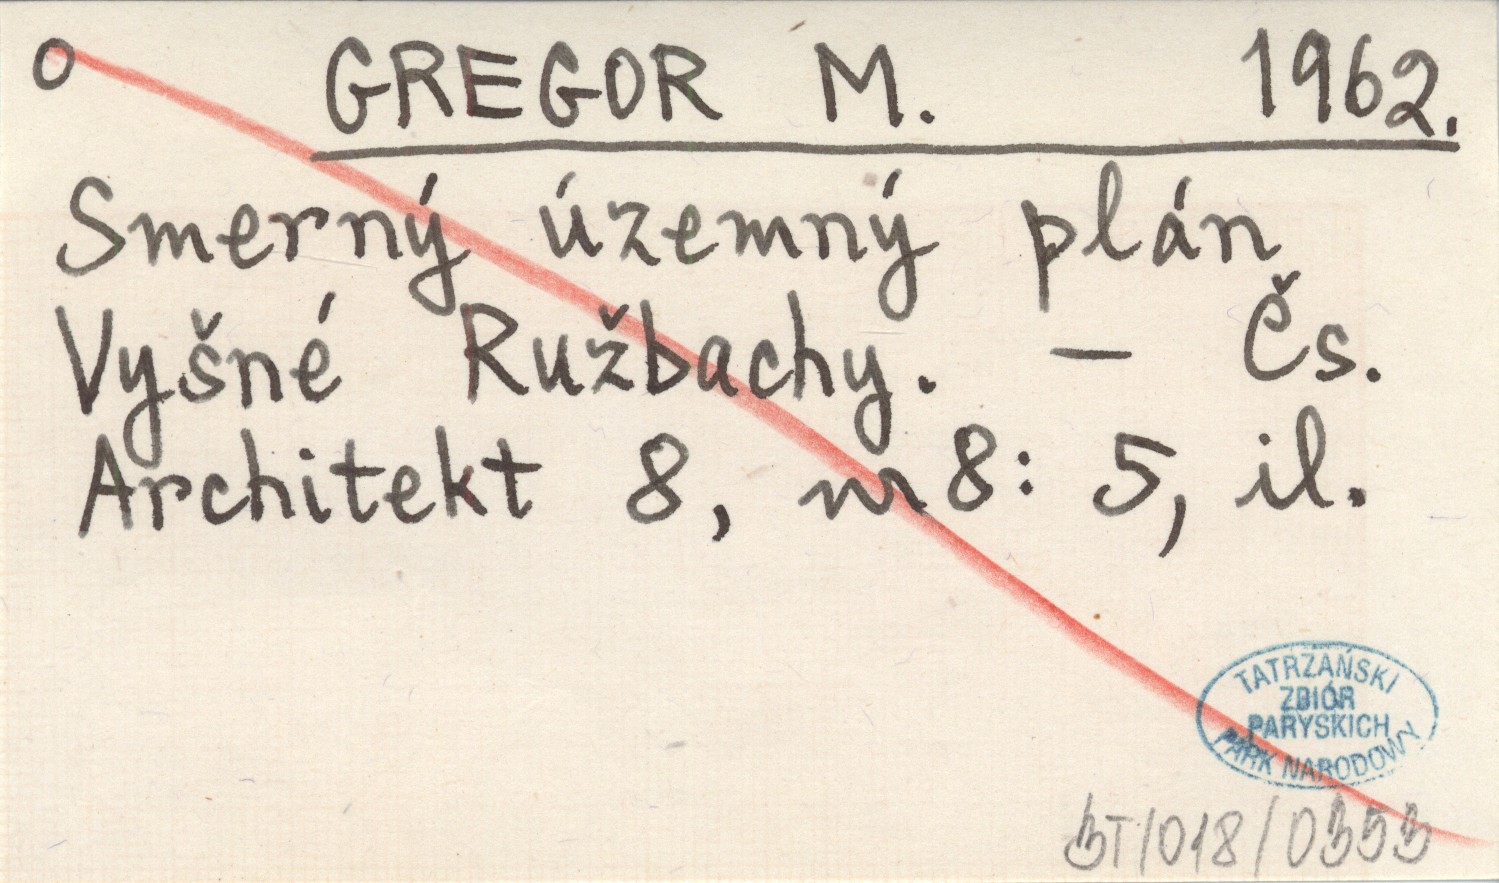 o GREGOR M. 1962.
Smerný územný plán
Vyšné Ružbachy. — Čs.
Architekt 8, nr 8: 5, il.
TATRZAŃSKI
ZBIÓR
PARYSKICH
PARK NARODOWY
BT/018/0353